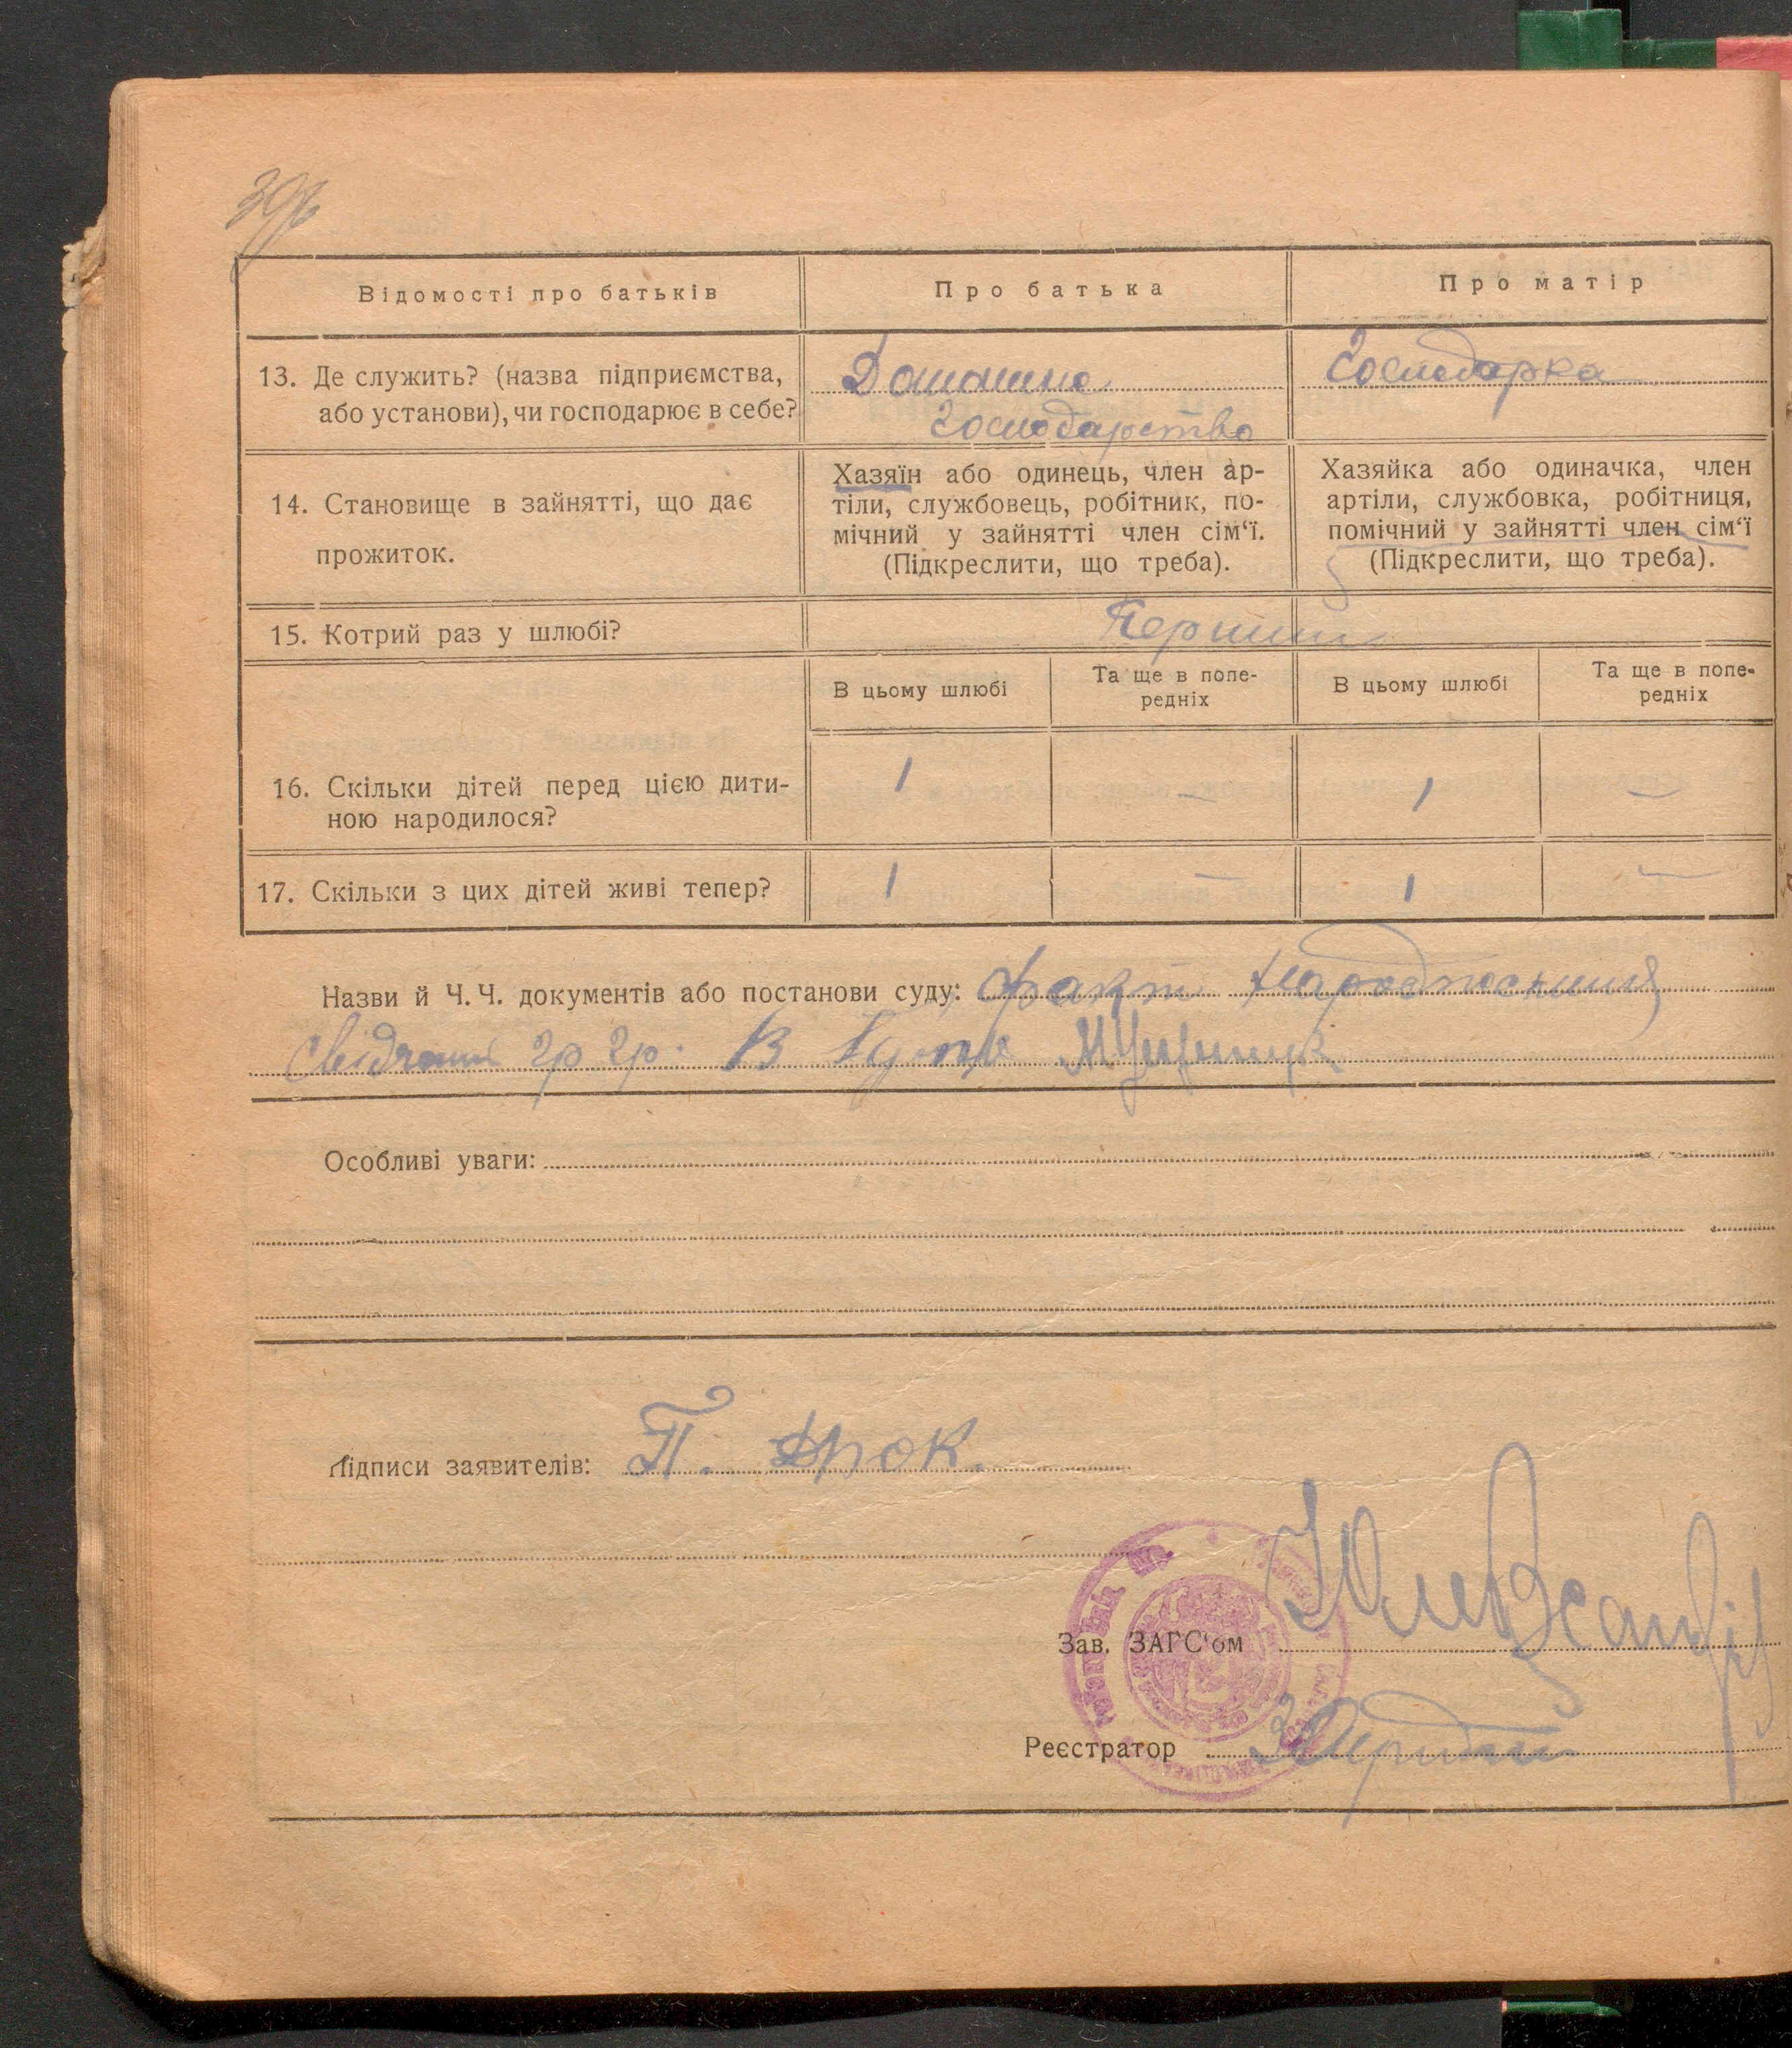 396
Відомості про батьків
Про батька
Про матір
13. Де служить? (назва підприємства,
або установи), чи господарює в себе?
Домашнє
Господарство
Господарка
14. Становище в зайнятті, що дає
прожиток.
Хазяїн або одинець, член ар-
тіли, службовець, робітник, по-
мічний у зайнятті член сім‘ї.
(Підкреслити, що треба).
Хазяйка або одиначка, член
артіли, службовка, робітниця,
помічний у зайнятті член сім‘ї
(Підкреслити, що треба).
15. Котрий раз у шлюбі?
Перший
В цьому шлюбі
Та ще в попе-
редніх
В цьому шлюбі
Та ще в попе-
редніх
16. Скільки дітей перед цією дити-
ною народилося?
1 — 1 —
17. Скільки з цих дітей живі тепер?
1 — 1 —
Назви й Ч. Ч. документів або постанови суду: факт
гр гр. В
Особливі уваги:
Підписи заявителів: П. Дрок.
Зав. ЗАГС‘ом
Реєстратор